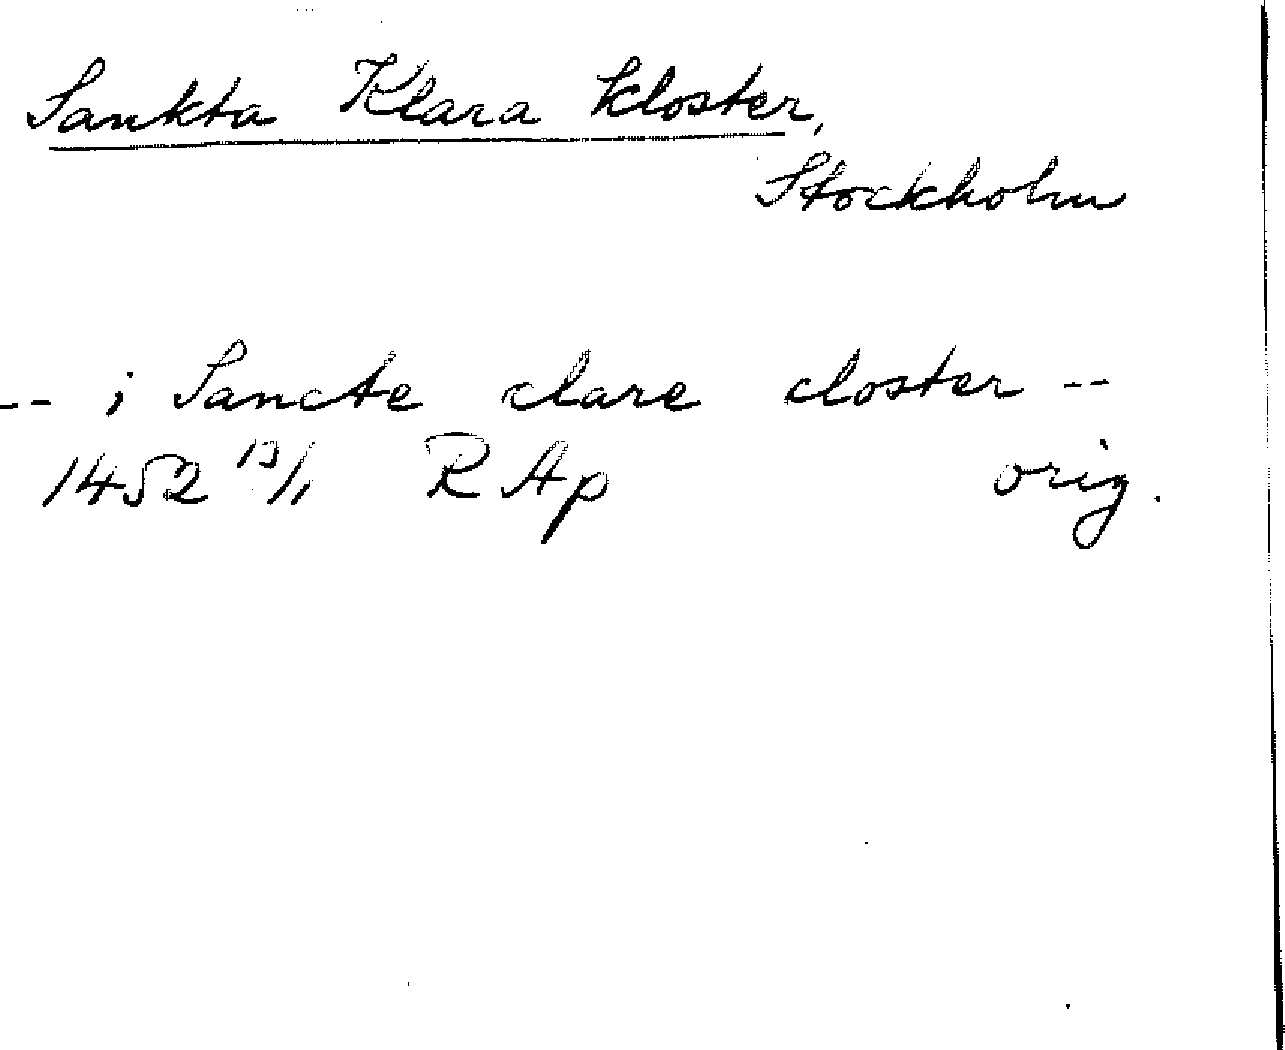 Sankta Klara kloster,
Stockholm
-- i Sancte clare closter --
1452 13/1 RAp orig.